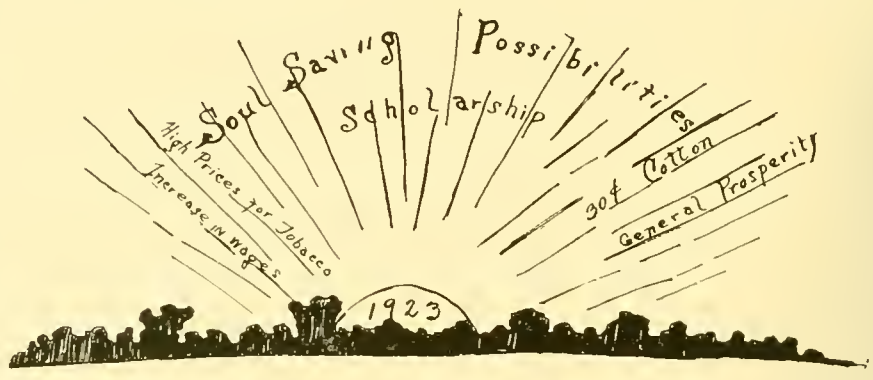 Soul Saving Possibilities
Scholarship
High Prices for Tobacco
Increase in wages
30¢ Cotton
General Prosperity
1923